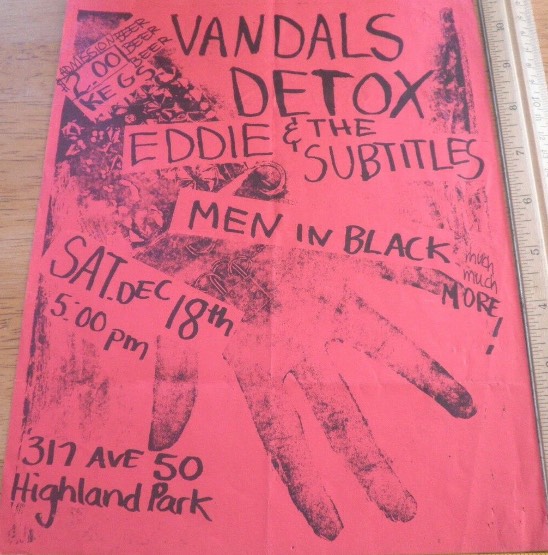 ADMISSION BEER
$2.00 BEER
KEGS BEER
VANDALS
DETOX
EDDIE & THE
SUBTITLES
MEN IN BLACK
much
much
MORE!
SAT. DEC 18th
5:00 pm
317 AVE 50
Highland Park